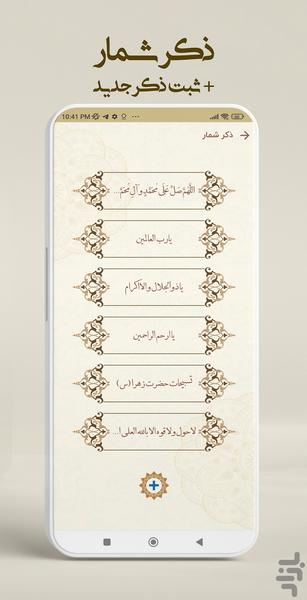 ذکر شمار
+ ثبت ذکر جدید
10:41 PM
ذکر شمار
اللَّهُمَّ صَلِّ عَلَى مُحَمَّدٍ وَآلِ مُحَمَّ...
یارب العالمین
یا ذوالجلال والاکرام
یا ارحم الراحمین
تسبیحات حضرت زهرا (س)
لا حول ولا قوه الا بالله العلی ا...
بازار